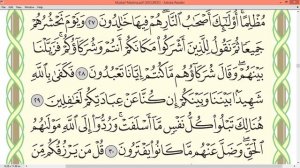 مُظْلِمًا أُو۟لَٰٓئِكَ أَصْحَٰبُ ٱلنَّارِ هُمْ فِيهَا خَٰلِدُونَ ٢٧ وَيَوْمَ نَحْشُرُهُمْ
جَمِيعًا ثُمَّ نَقُولُ لِلَّذِينَ أَشْرَكُوا۟ مَكَانَكُمْ أَنتُمْ وَشُرَكَآؤُكُمْ فَزَيَّلْنَا
بَيْنَهُمْ وَقَالَ شُرَكَآؤُهُم مَّا كُنتُمْ إِيَّانَا تَعْبُدُونَ ٢٨ فَكَفَىٰ بِٱللَّهِ
شَهِيدًۢا بَيْنَنَا وَبَيْنَكُمْ إِن كُنَّا عَنْ عِبَادَتِكُمْ لَغَٰفِلِينَ ٢٩
هُنَالِكَ تَبْلُوا۟ كُلُّ نَفْسٍ مَّآ أَسْلَفَتْ وَرُدُّوٓا۟ إِلَى ٱللَّهِ مَوْلَىٰهُمُ
ٱلْحَقِّ وَضَلَّ عَنْهُم مَّا كَانُوا۟ يَفْتَرُونَ ٣٠ قُلْ مَن يَرْزُقُكُم مِّنَ